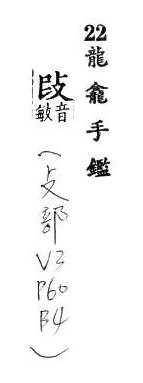 22龍龕手鑑
音敏
(攴部 V3 P60 B4)